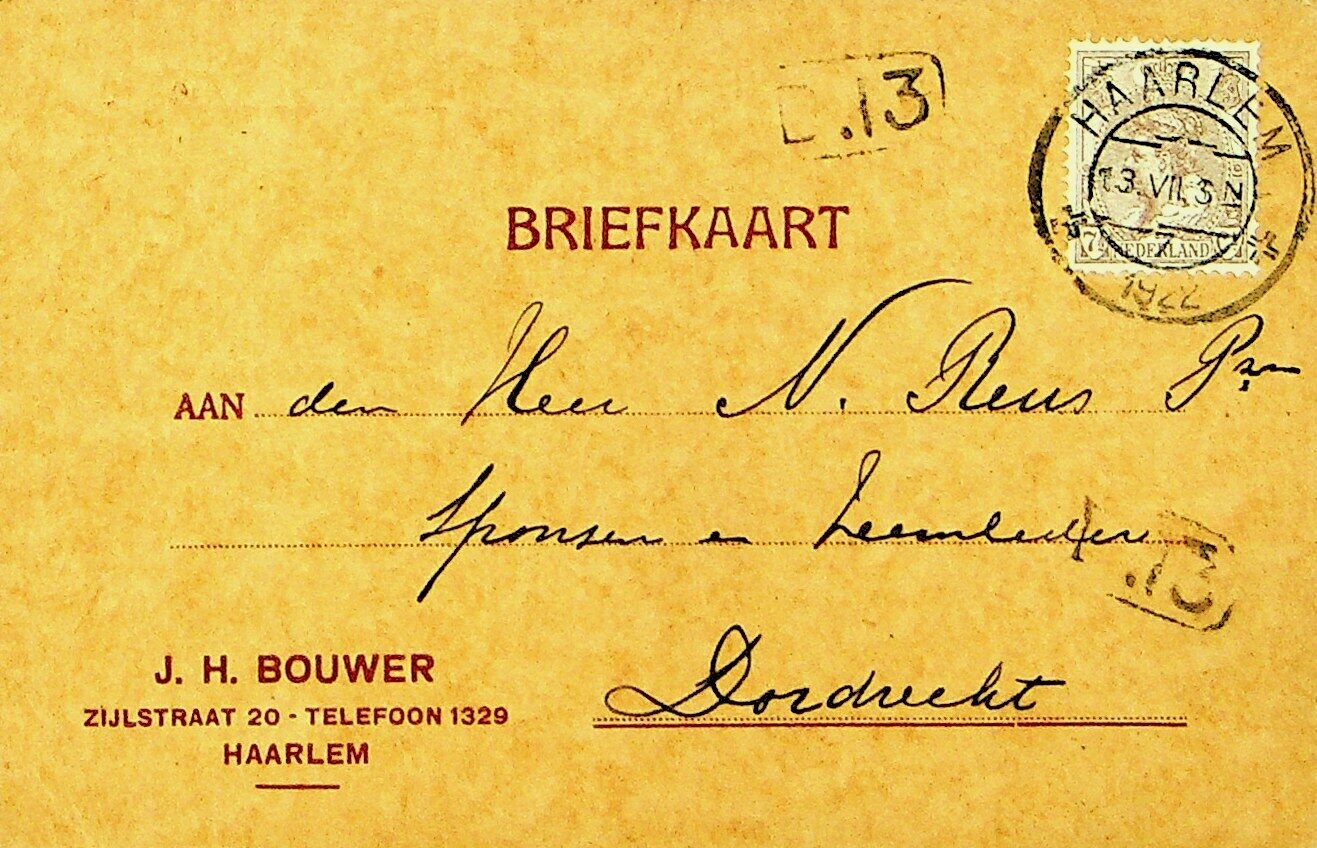 .13
HAARLEM
13.VII.3
N
1922
7½
NEDERLAND
BRIEFKAART
AAN den Heer N. Reus Pzn
Sponsen en Zeemleder
.13
Dordrecht
J. H. BOUWER
ZIJLSTRAAT 20 - TELEFOON 1329
HAARLEM